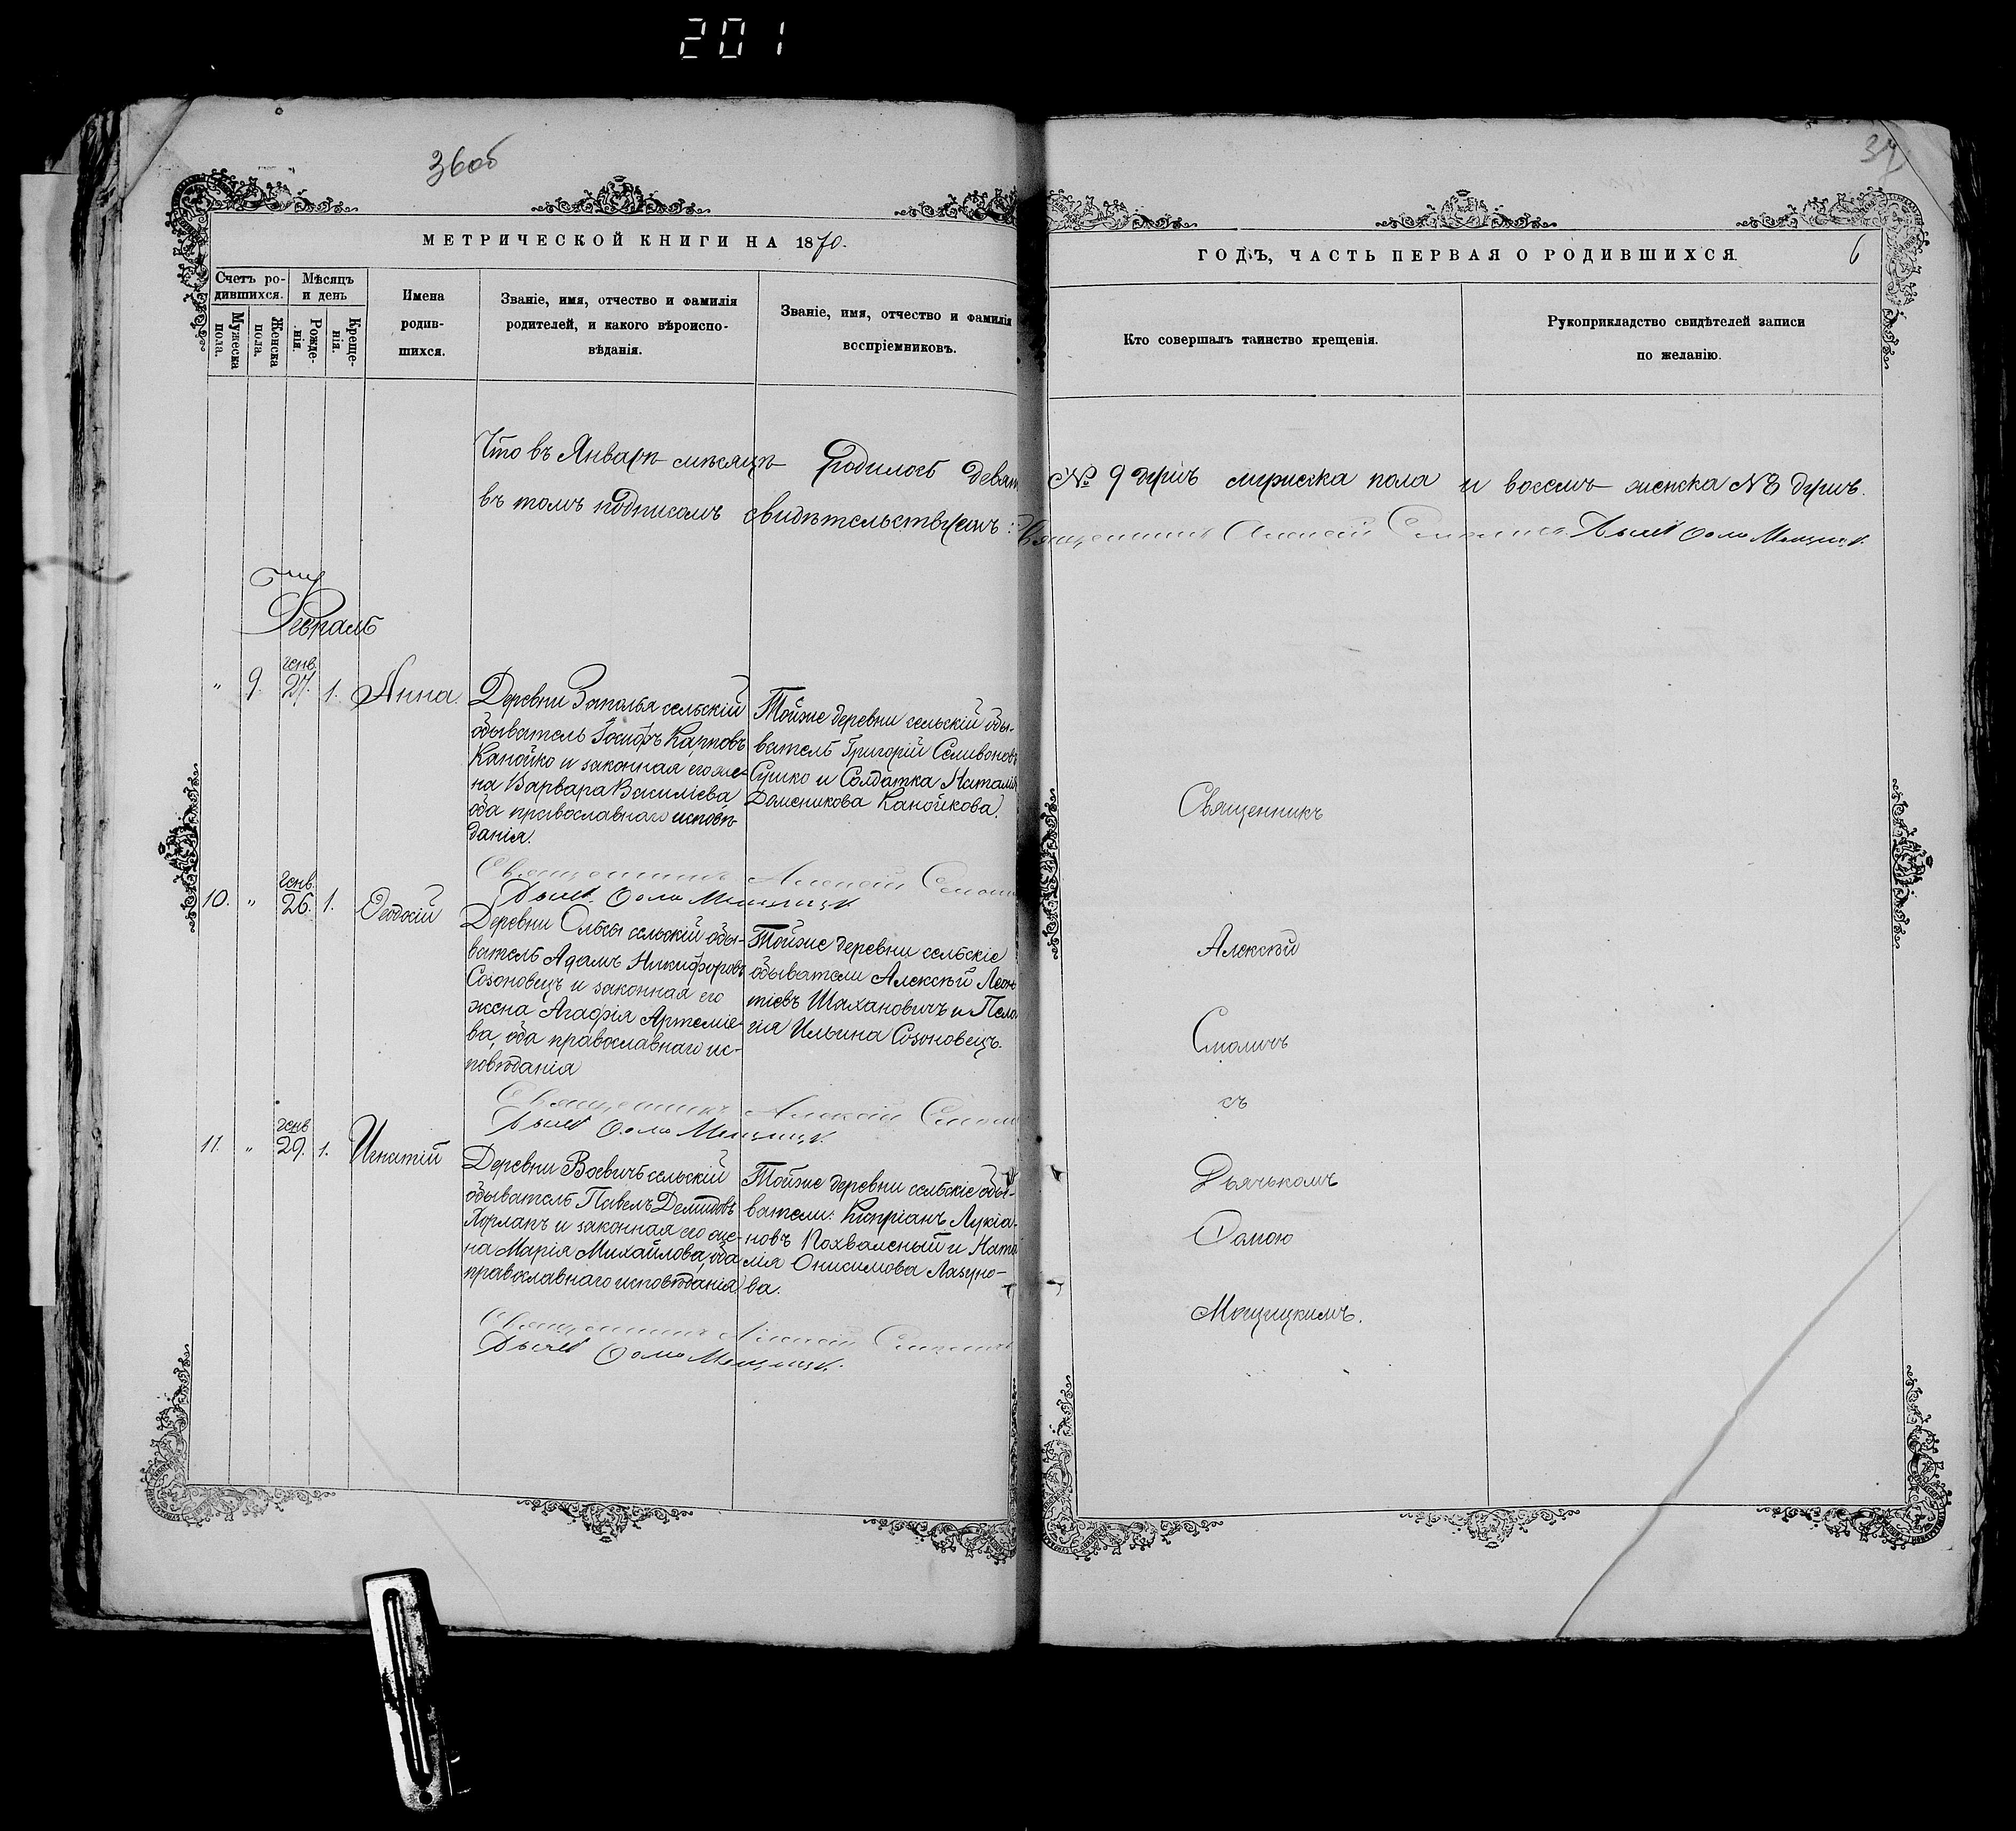 201
36об
37
МЕТРИЧЕСКОЙ КНИГИ НА 1870.
ГОДЪ, ЧАСТЬ ПЕРВАЯ О РОДИВШИХСЯ.
6
Счетъ ро-
дившихся.
Мужеска
пола.
Женска
пола.
Мѣсяцъ
и день
Рожде-
нія.
Креще-
нія.
Имена
родив-
шихся.
Званіе, имя, отчество и фамилія
родителей, и какого вѣроиспо-
вѣданія.
Званіе, имя, отчество и фамилія
воспріемниковъ.
Кто совершалъ таинство крещенія.
Рукоприкладство свидѣтелей записи
по желанію.
Что въ Январѣ мѣсяцѣ родилось девят № 9 душъ мужеска пола и восемь женска № 8 душъ.
въ томъ подписомъ свидѣтельствуемъ: Священникъ Алексѣй Смоличъ. Дьячекъ Ѳома
Февраль
" 9. генв. 27. 1. Анна.
Деревни Заполья сельскій
обыватель Іосифъ Карповъ
Канойко и законная его же-
на Варвара Василіева
оба православнаго исповѣ-
данія.
Тойже деревни сельскій обы-
ватель Григорій Селивоновъ
Сушко и Солдатка Наталія
Доменикова Канойкова.
Священникъ Алексѣй
Дьячекъ Ѳома
10. " генв. 26. 1. Ѳеодосій
Деревни Ольсы сельскій обы-
ватель Адамъ Никифоровъ
Созоновецъ и законная его
жена Агафія Артеміе-
ва, оба православнаго ис-
повѣданія
Тойже деревни сельскіе
обыватели Алексѣй Леон
тіевъ Шахановичъ и Пела
гія Ильина Созоновецъ.
Священникъ Алексѣй
Дьячекъ Ѳома
11. " генв. 29. 1. Игнатій
Деревни Воевичь сельскій
обыватель Павелъ Демидовъ
Хорлапъ и законная его же-
на Марія Михайлова, оба
православнаго исповѣданія
Тойже деревни сельскіе обы-
ватели: Кипріанъ Лукіа-
новъ Похваленый и Ната
лія Онисимова Лазуно-
ва.
Священникъ Алексѣй
Дьячекъ Ѳома
Священникъ
Алексѣй
Смоличъ
съ
Дьячькомъ
Ѳомою
Мощицкимъ.